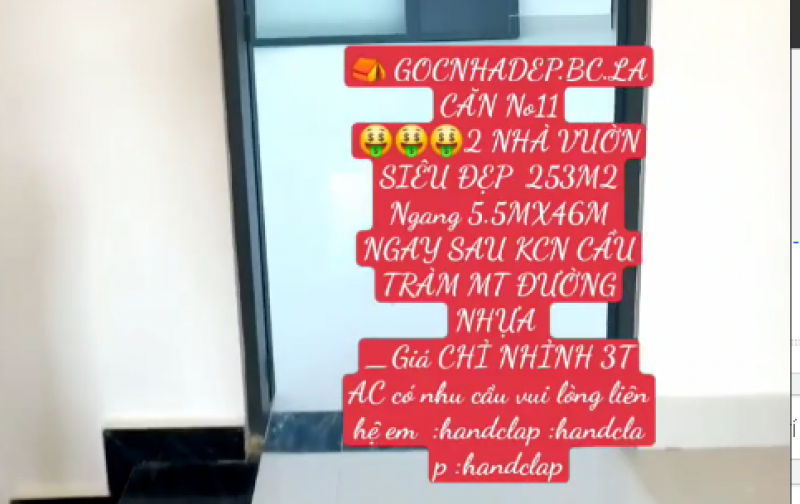 ⛺ GOCNHADEP.BC.LA
CĂN No11
🤑🤑🤑2 NHÀ VƯỜN
SIÊU ĐẸP 253M2
Ngang 5.5MX46M
NGAY SAU KCN CẦU
TRÀM MT ĐƯỜNG
NHỰA
_Giá CHỈ NHỈNH 3T
AC có nhu cầu vui lòng liên
hệ em :handclap :handcla
p :handclap